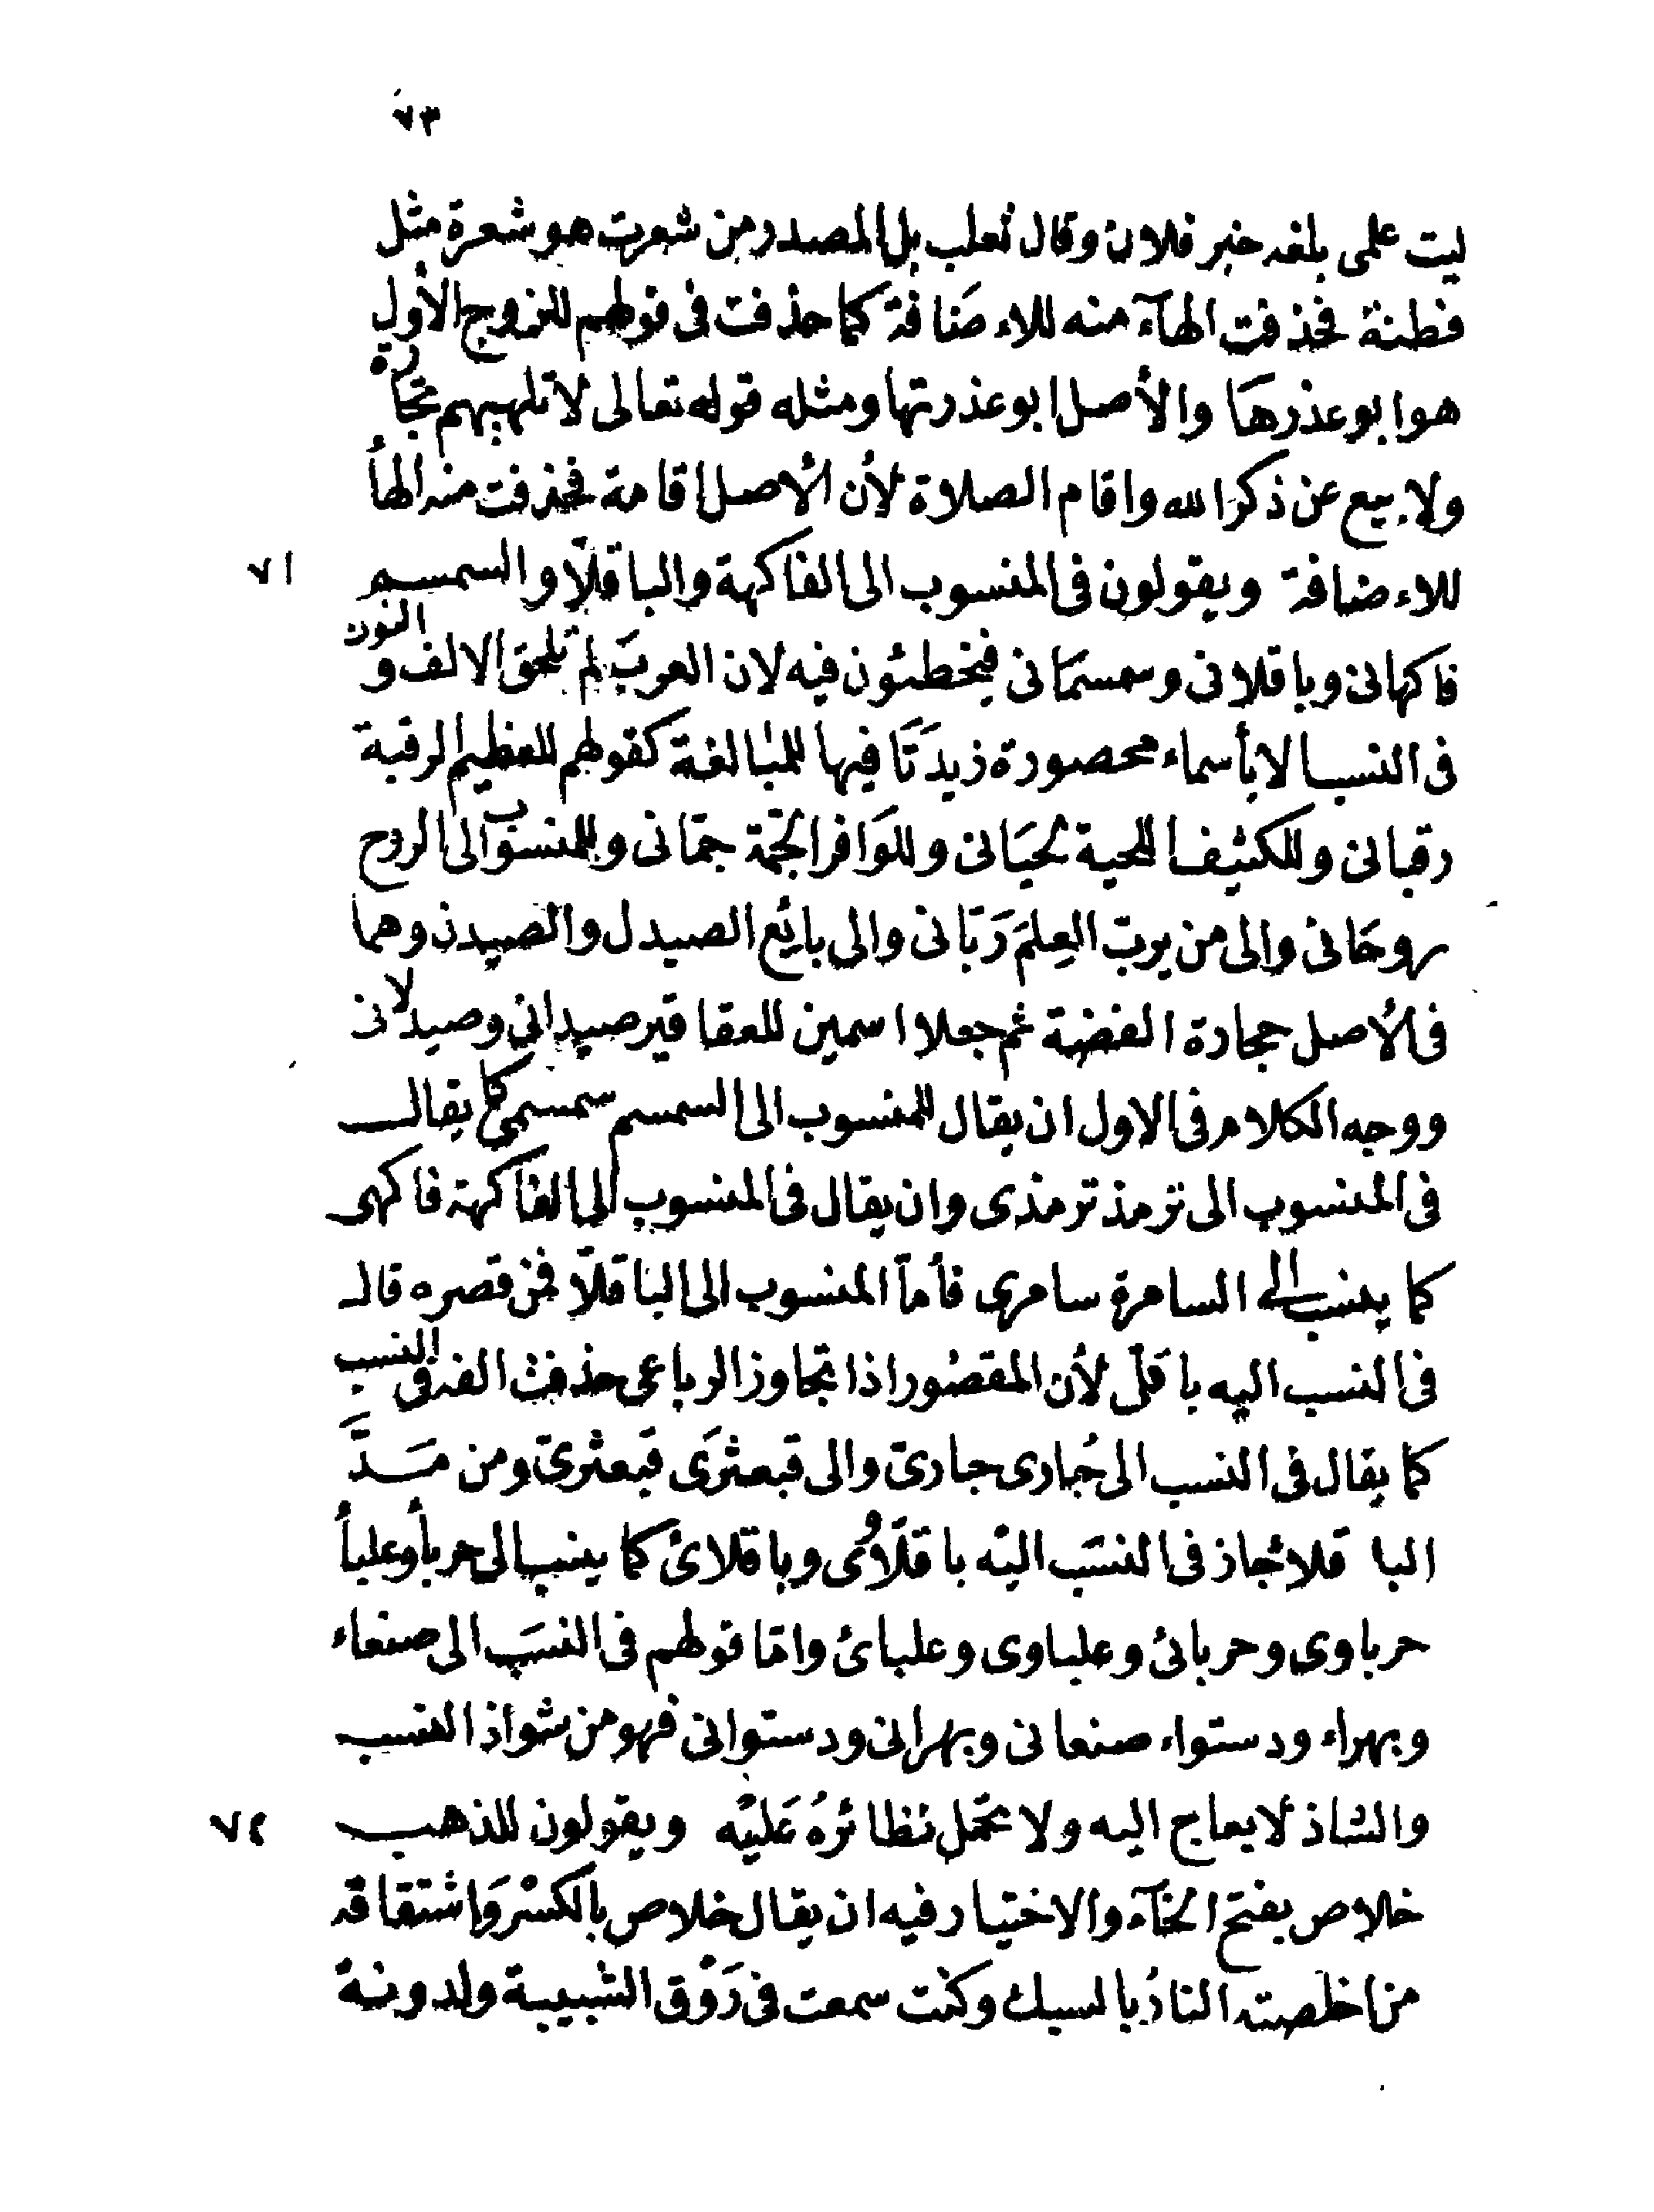 ٧٣
ليت علمى بلغه خبر فلان وقال ثعلب بل المصدر من شعرت هو شعرة مثل
فطنة فحذفت الهآء منه للاءضَافة كما حذفت فى قولهم للزوج الأول
هو ابو عذرهَا والأصل ابو عذرتها ومثله قوله تعالى لا تلهيهم تجارة
ولا بيع عن ذكر الله واقام الصلاة لأن الأصل اقامة فحذفت منه الهأ
للاءضافة ويقولون فى المنسوب الى الفاكهة والباقلّا والسمسم ٧١
فاكهانى وباقلانى وسمسمَانى فيخطئون فيه لان العربَ لم تلحق الالف والنون
فى النسب الا بأسماء محصورة زيدَتَا فيها للمبَالغة كقولهم للعظيم الرقبة
رقبانى وللكثيف اللحية لحيَانى وللوَافر الجُمّة جمّانى وللمنسوب الى الروح
روحَانى والى من يربّ العِلمَ رَبّانى والى بائع الصيدل والصيدن وهما
فى الأصل حجارة الفضة ثم جعلا اسمين للعقاقير صيدانى وصيدلانى
ووجه الكلام فى الاول ان يقال للمنسوب الى السمسم سمسمى كما يقال
فى المنسوب الى ترمذ ترمذى وان يقال فى المنسوب الى الفاكهة فاكهى
كما ينسب الى السامرة سامرى فأمّا المنسوب الى الباقلّا فمن قصره قال
فى النسب اليه باقَلّى لأن المقصُور اذا تجاوز الرباعى حذفت الفه فى النسب
كما يقال فى النسب الى حُبارى حبارىّ والى قبعثرَى قبعثرىّ ومن مَدَّ
الباقلاء جاز فى النسَب اليْه باقلّاوُى وباقلائ كما ينسب الى حربأ وعلبأ
حرباوى وحربائ وعلباوى وعلبائ وامّا قولهم فى النسَب الى صنعاء
وبهراء ودستواء صنعانى وبهرانى ودستوانى فهو من شواذ النسب
والشاذ لا يعاج اليه ولا تحمل نظائرُه عَليْه ويقولون للذهب ٧٢
خلاص بفتح الخآء والاختيار فيه ان يقال خلاص بالكسْر وَاشتقاقه
من اخلصته النارُ بالسبك وكنت سمعت فى رَوْق الشبيبة ولدونة